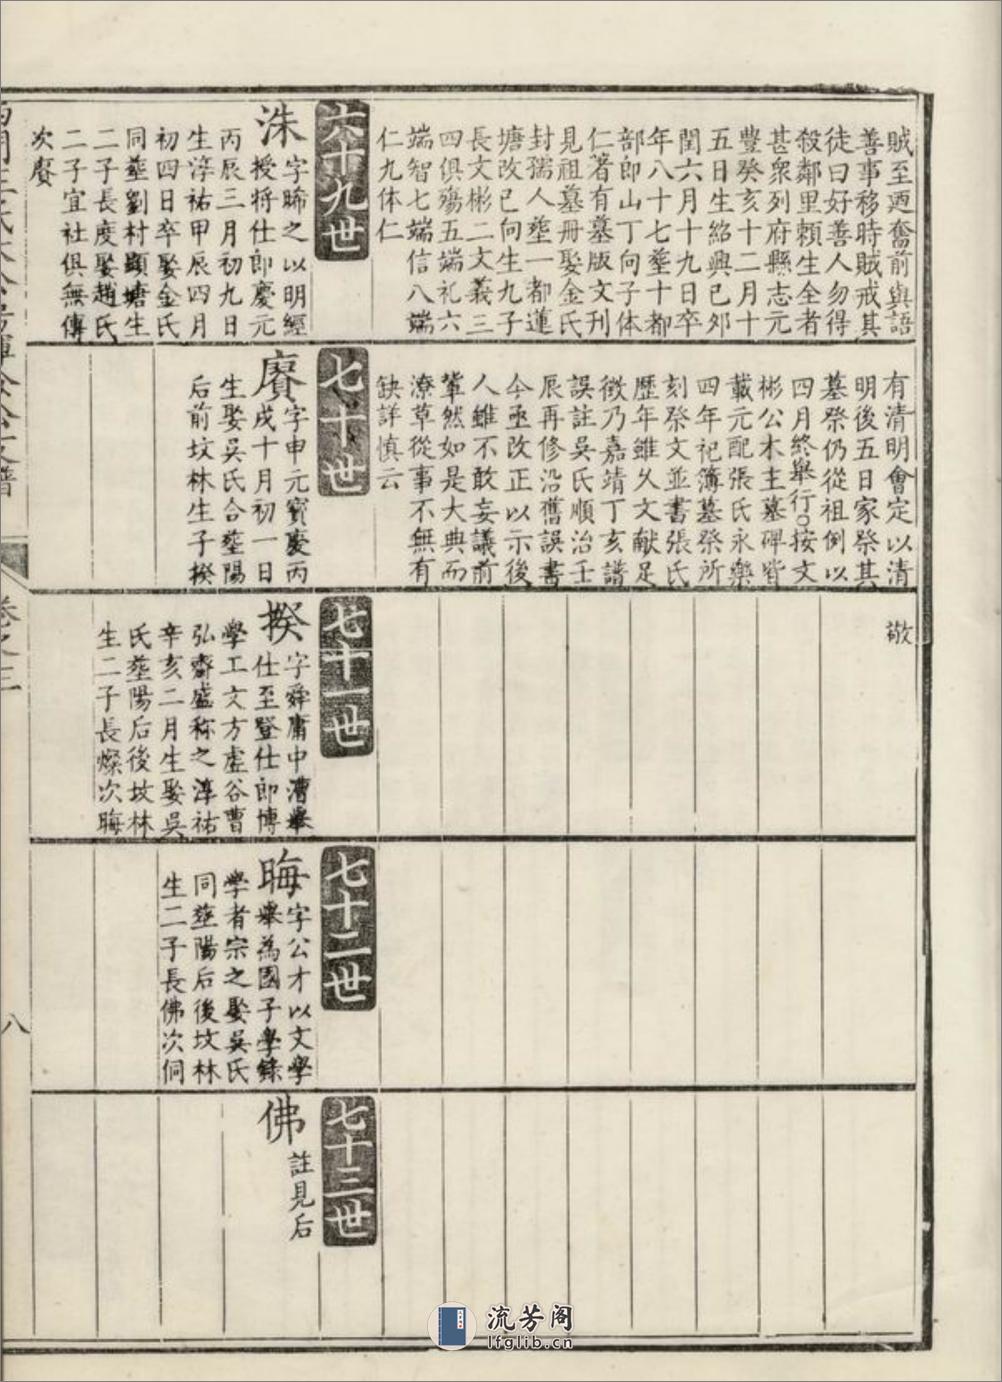 賊至迺奮前與語
善事移時賊戒其
徒曰好善人勿得
殺鄰里頼生全者
甚衆列府縣志元
豐癸亥十二月十
五日生紹興己夘
閏六月十九日卒
年八十七塟十都
部郎山丁向子体
仁著有墓版文刊
見祖墓册娶金氏
封孺人塟一都蓮
塘改已向生九子
長文彬二文義三
四俱殤五端礼六
端智七端信八端
仁九体仁
六十九世
洙
字晞之以明經
授將仕郎慶元
丙辰三月初九日
生淳祐甲辰四月
初四日卒娶金氏
同塟劉村塘生
二子長度娶趙氏
二子宜社俱無傳
次賡
有清明會定以清
明後五日家祭其
墓祭仍從祖例以
四月終舉行○按文
彬公木主墓碑皆
載元配張氏永樂
四年祀簿墓祭所
刻祭文並書張氏
歷年雖久文献足
徴乃嘉靖丁亥譜
誤註吳氏順治壬
辰再修沿舊誤書
今亟改正以示後
人雖不敢妄議前
軰然如是大典而
潦草從事不無有
缺詳慎云
七十世
賡
字申元寳慶丙
戌十月初一日
生娶吳氏合塟陽
后前坟林生子揆
敬
七十一世
揆
字舜庸中漕舉
仕至登仕郎博
學工文方虛谷曹
弘齋盛称之淳祐
辛亥二月生娶吳
氏塟陽后後坟林
生二子長燦次晦
七十二世
晦
字公才以文學
舉為國子學錄
學者宗之娶吳氏
同塟陽后後坟林
生二子長佛次侗
七十三世
佛
註見后
卷之三
八
流芳阁
lfglib.cn